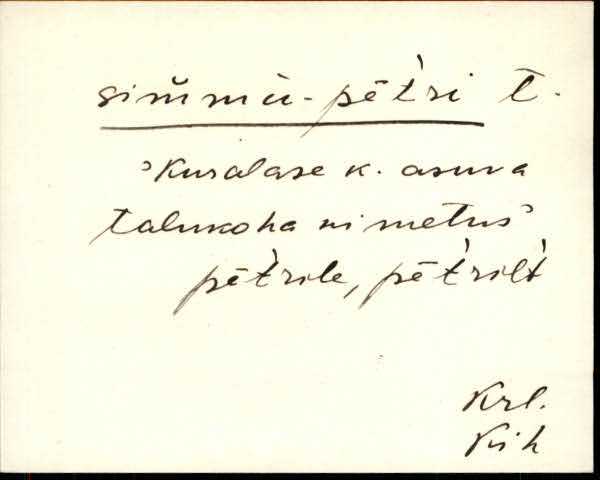 sim̆mù-pēt̀ri t.
'Kuralase k. asuva
talukoha nimetus'
pēt̀rile, pēt̀rilt̀
Krl.
Kih